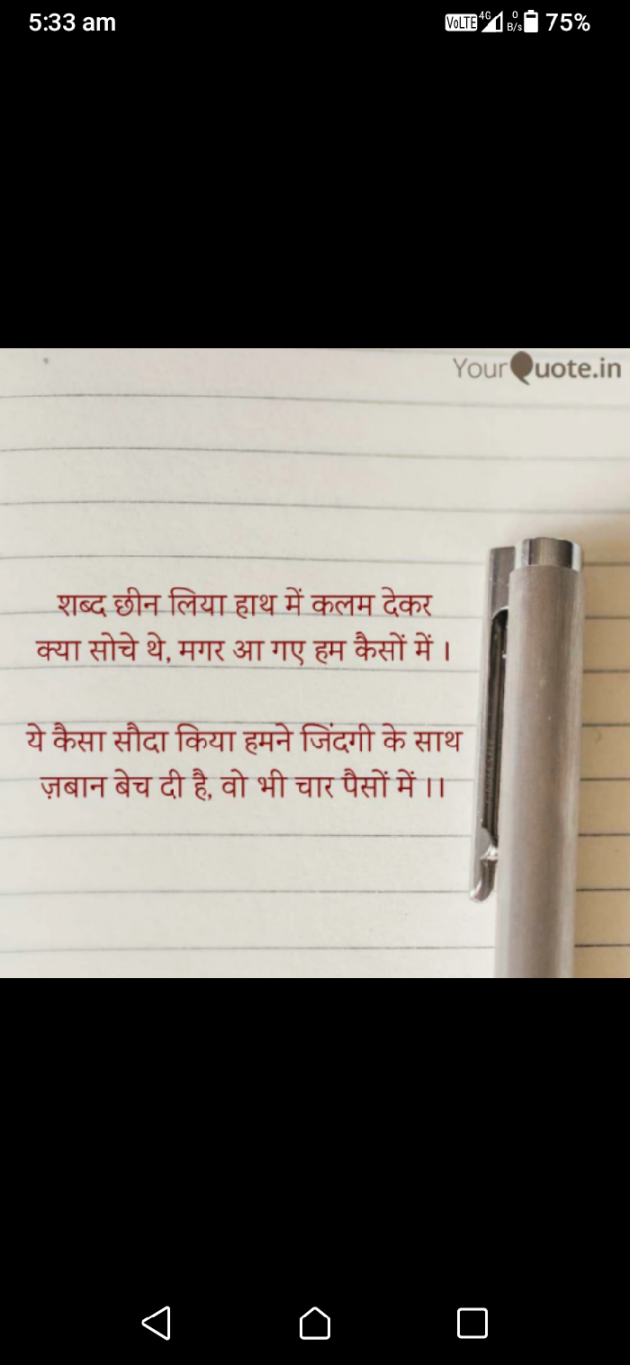 5:33 am VoLTE 4G 0 B/s 75%
YourQuote.in
शब्द छीन लिया हाथ में कलम देकर
क्या सोचे थे, मगर आ गए हम कैसों में ।
ये कैसा सौदा किया हमने जिंदगी के साथ
ज़बान बेच दी है, वो भी चार पैसों में ।।